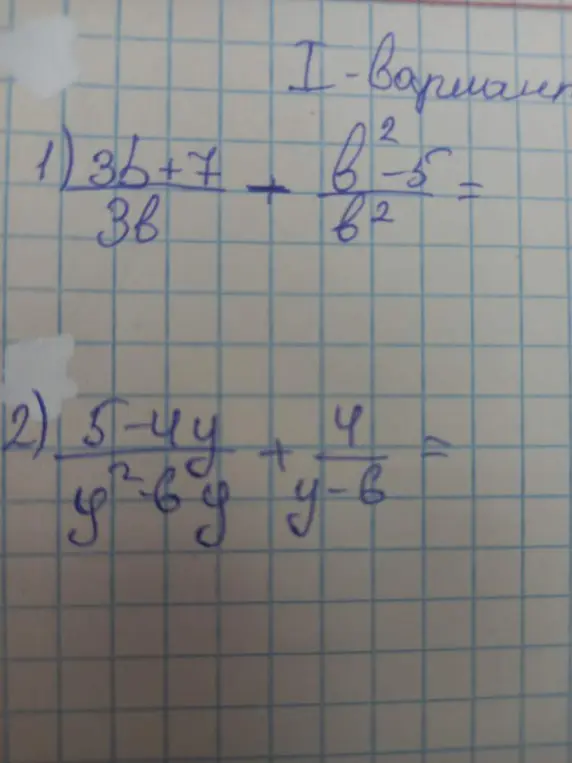 I - вариант
1) (3b+7)/(3b) + (b²-5)/(b²) =
2) (5-4y)/(y²-6y) + 4/(y-6) =